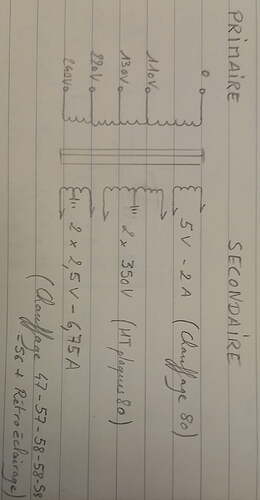 PRIMAIRE
SECONDAIRE
0
110V
130V
220V
240V
5V - 2A (Chauffage 80)
2 x 350V (HT plaques 80)
2 x 2,5V - 6,75A
(Chauffage 47-57-58-58-58
-56 + Rétroéclairage)